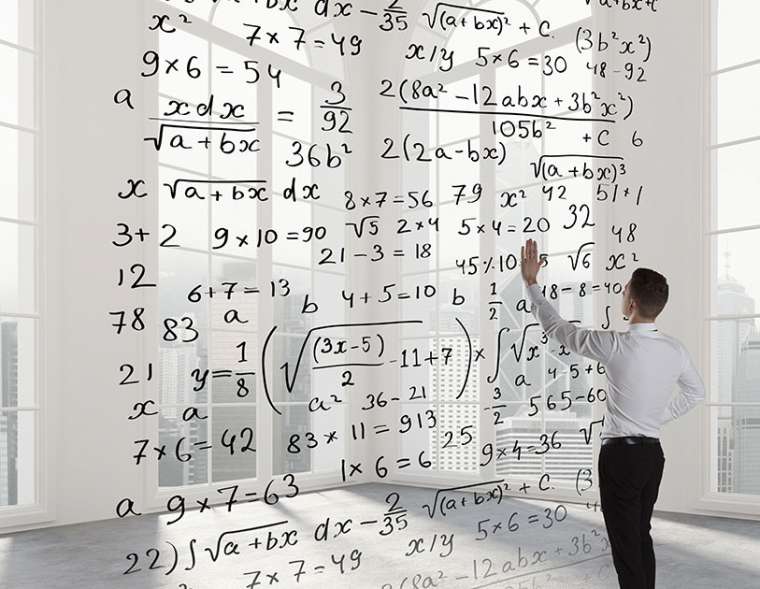 dx - 2/35 √(a+bx)² + c
x² 7×7=49 x/y 5×6=30 (3b²x²)
9×6=54 48-92
a xdx/√a+bx = 3/92 2(8a²-12abx+3b²x²)/105b² + C 6
36b² 2(2a-bx) √(a+bx)³
x √a+bx dx 8×7=56 79 x² 42 51*1
3+2 9×10=90 √5 2×4 5×4=20 32 48
21-3=18 45%10 √6 x²
12 6+7=13 b 4+5=10 b 1/2 a 18-8=40
78 83 a ∫
21 y=1/8(√(3x-5)/2-11+7)× ∫√x³-x
a 4-5+6
x a a² 36-21 -3/2 565-60
7×6=42 83*11=913 25 9×4=36
1×6=6
a 9×7=63 dx-2/35 √(a+bx)²+c. (3
22)∫√a+bx x/y 5×6=30
7×7=49 2(8a²-12abx+3b²x
105b² + C